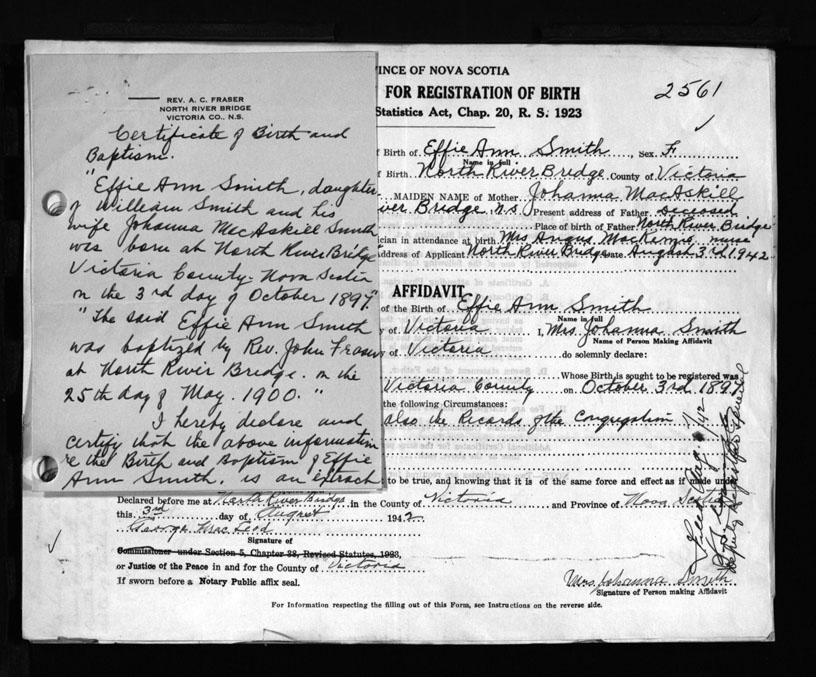 REV. A. C. FRASER
NORTH RIVER BRIDGE
VICTORIA CO., N.S.
Certificate of Birth and
Baptism.
"Effie Ann Smith, daughter
of William Smith and his
wife Johanna MacAskill Smith
was born at North River Bridge
Victoria County. Nova Scotia
on the 3rd day of October 1897."
"The said Effie Ann Smith
was baptized by Rev. John Fraser
at North River Bridge. on the
25th day of May. 1900."
I hereby declare and
certify that the above information
re the Birth and Baptism of Effie
Ann Smith. is an extract
INCE OF NOVA SCOTIA
2561
FOR REGISTRATION OF BIRTH
Statistics Act, Chap. 20, R. S. 1923
f Birth of Effie Ann Smith, Sex F.
Name in full
f Birth North River Bridge County of Victoria
MAIDEN NAME of Mother Johanna MacAskill
ver Bridge N.S. Present address of Father Deceased
Place of birth of Father North River Bridge
ician in attendance at birth Mrs Angus MacKenzie, nurse
ddress of Applicant North River Bridge Date August 3rd 1942
AFFIDAVIT
of the Birth of Effie Ann Smith
Name in full
y of Victoria I, Mrs. Johanna Smith
Name of Person Making Affidavit
y of Victoria do solemnly declare:
Whose Birth is sought to be registered was
Victoria County on October 3rd 1897
the following Circumstances:
also the Records of the Congregation
t to be true, and knowing that it is of the same force and effect as if made under
Declared before me at North River Bridge in the County of Victoria and Province of Nova Scotia
this 3rd day of August 1942
George MacLeod
Signature of
Commissioner under Section 5, Chapter 38, Revised Statutes, 1923,
or Justice of the Peace in and for the County of Victoria
If sworn before a Notary Public affix seal.
Mrs. Johanna Smith
Signature of Person making Affidavit
For Information respecting the filling out of this Form, see Instructions on the reverse side.
Deputy Registrar General